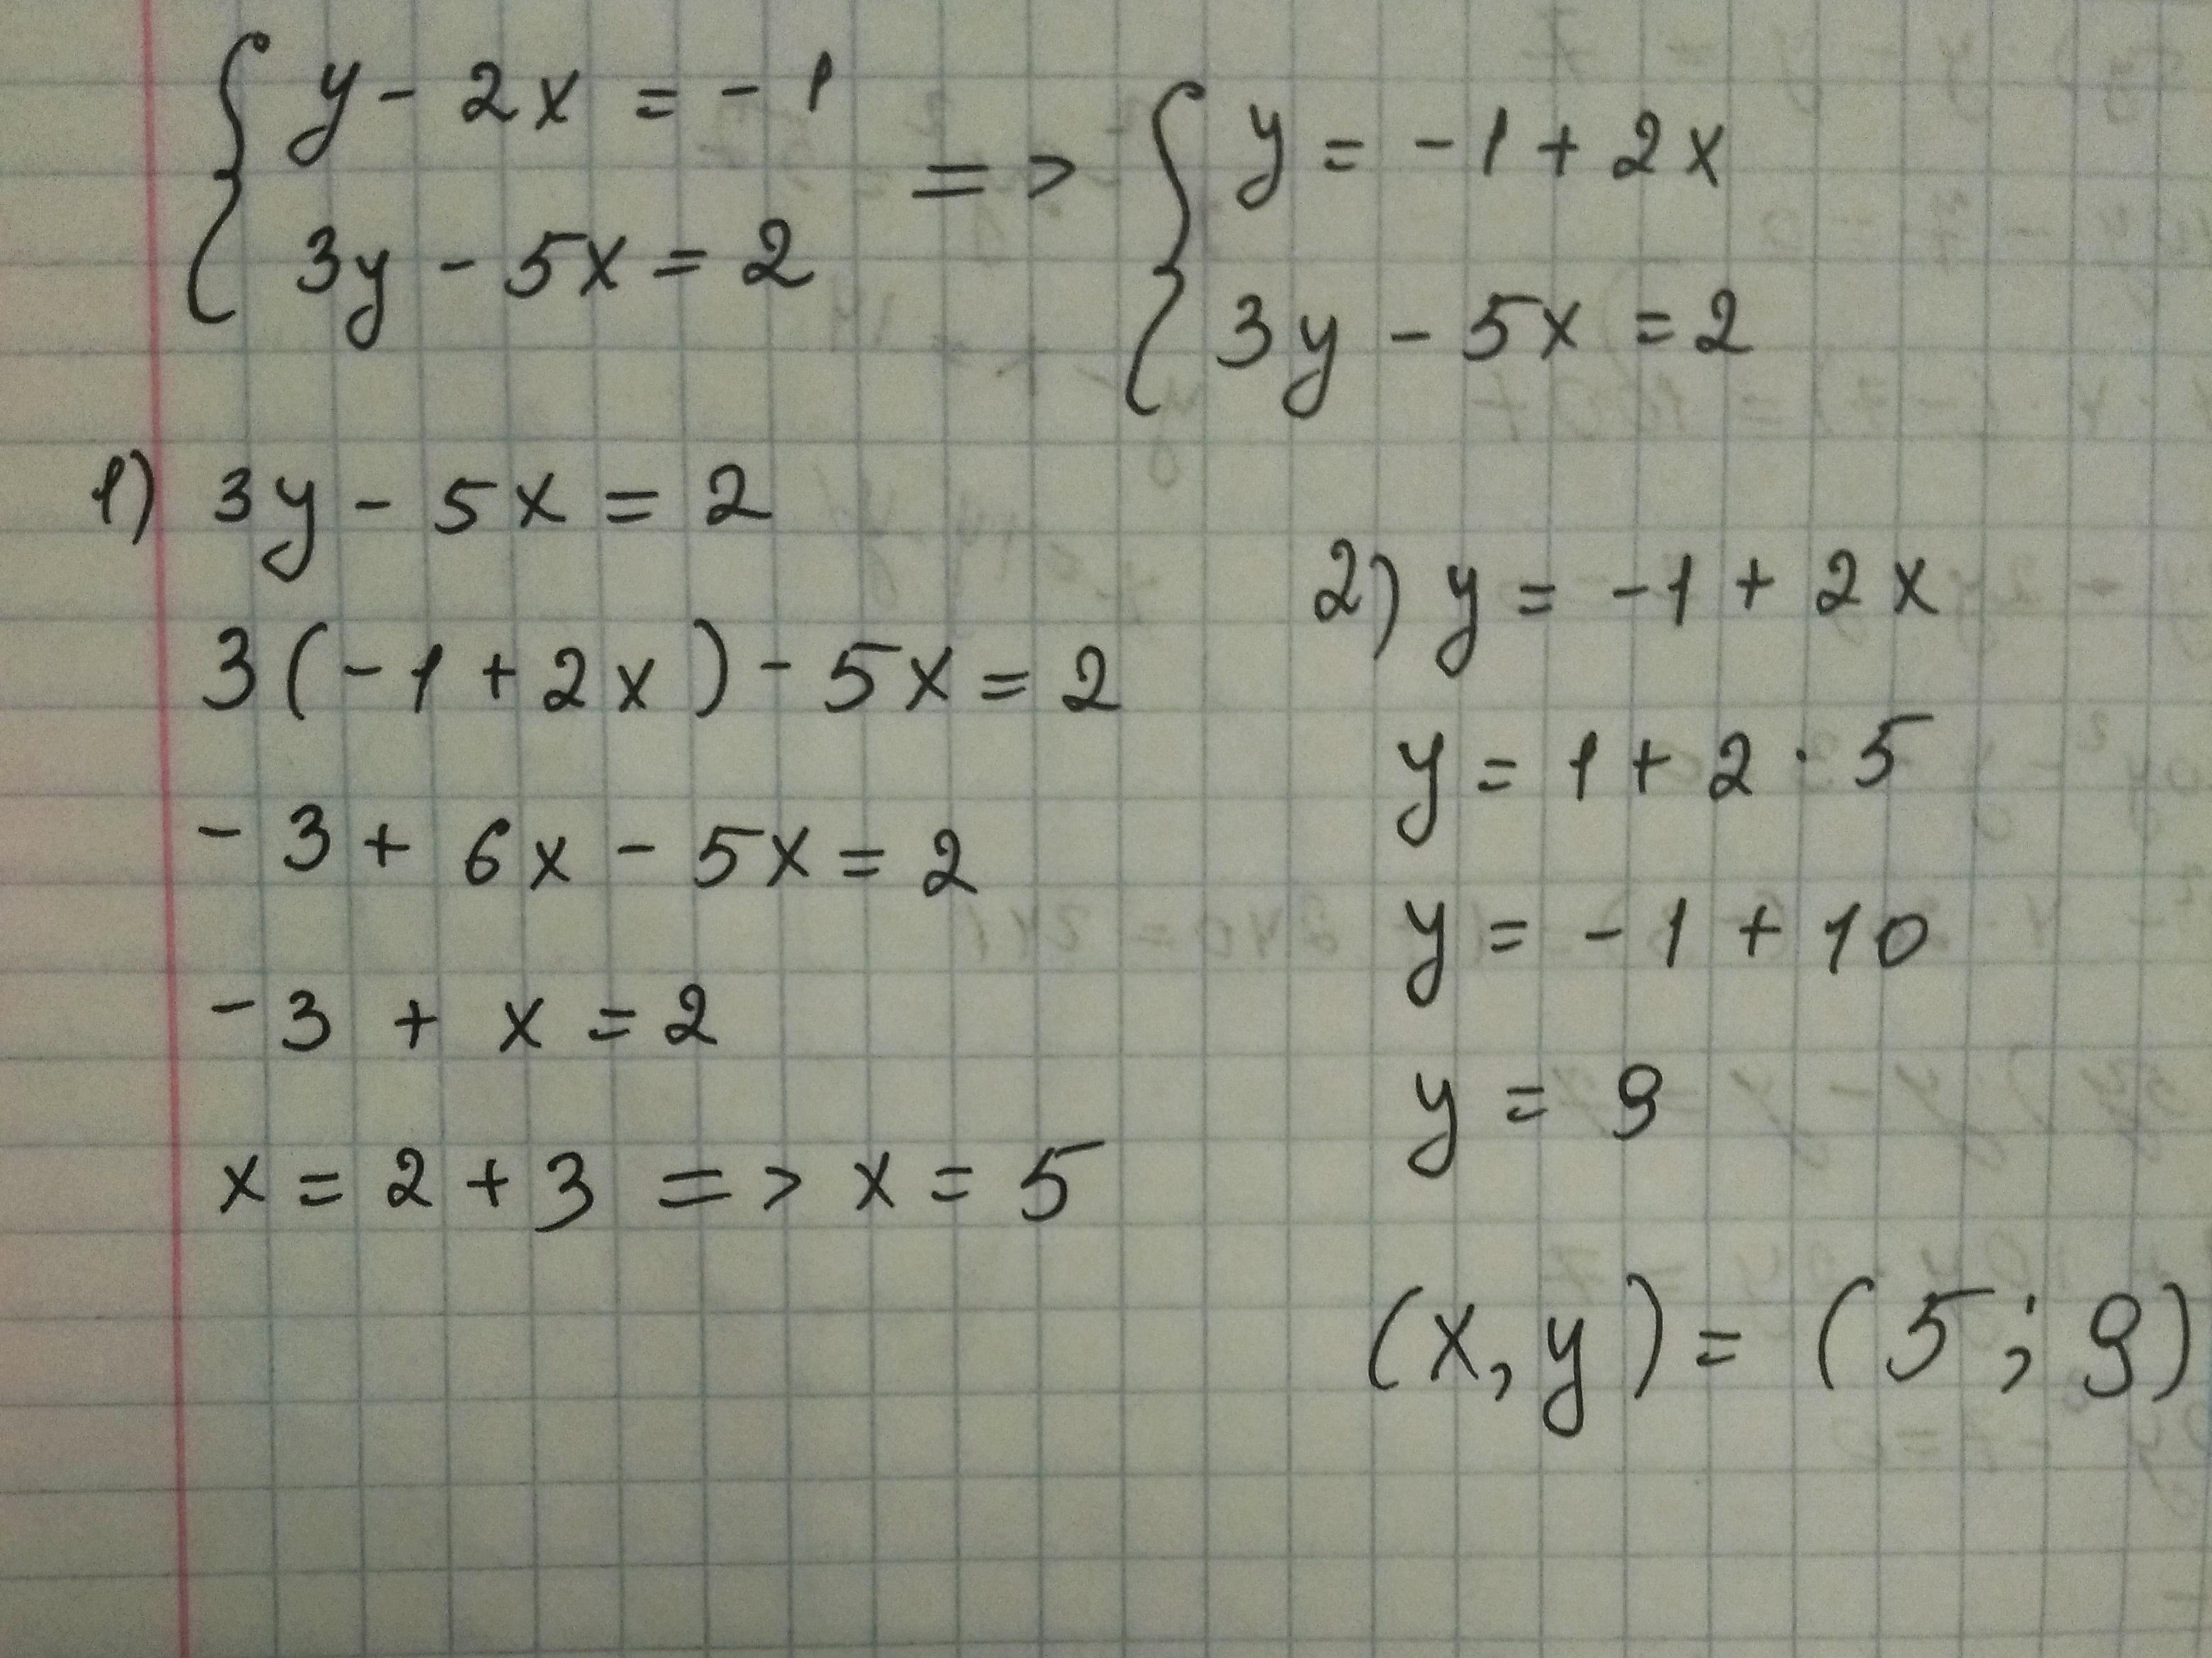 y - 2x = -1
3y - 5x = 2
=> y = -1 + 2x
3y - 5x = 2
1) 3y - 5x = 2
3(-1 + 2x) - 5x = 2
-3 + 6x - 5x = 2
-3 + x = 2
x = 2 + 3 => x = 5
2) y = -1 + 2x
y = 1 + 2 · 5
y = -1 + 10
y = 9
(x, y) = (5; 9)